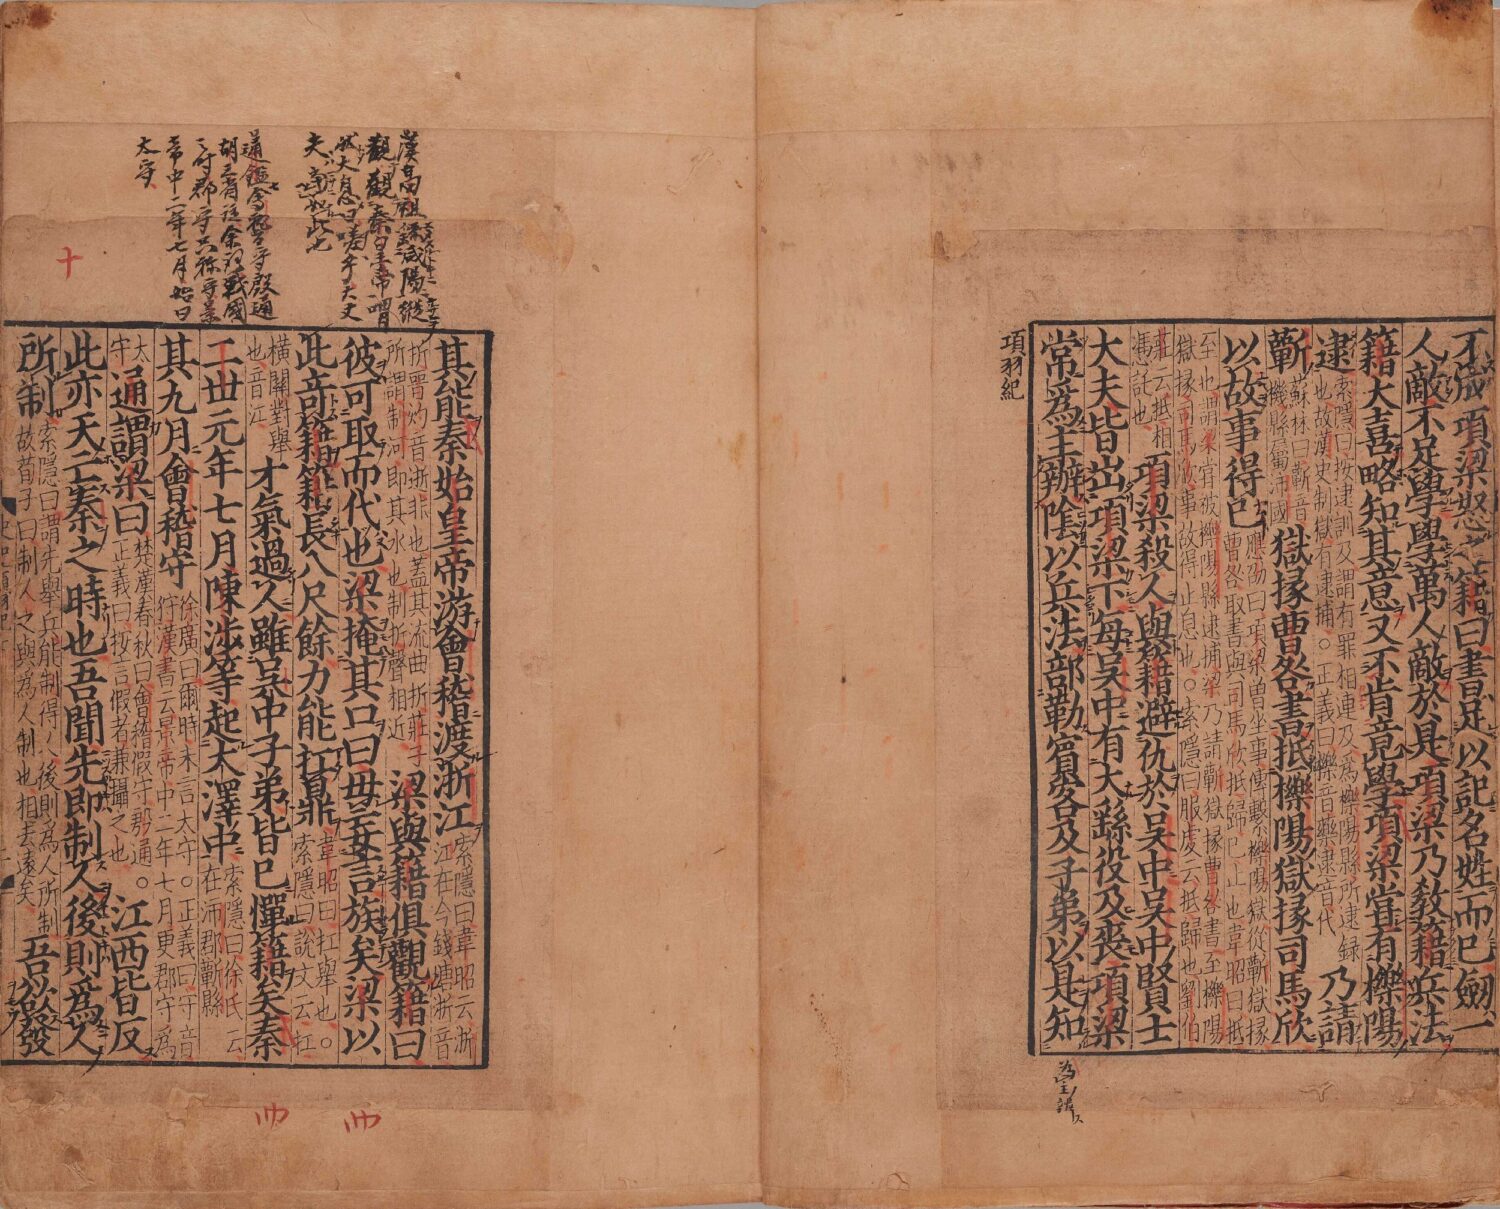 不成項梁怒之籍曰書足以記名姓而已劒一
人敵不足學學萬人敵於是項梁乃敎籍兵法
籍大喜略知其意又不肯竟學項梁嘗有櫟陽
逮 索隱曰按逮訓及謂有罪相連及爲櫟陽縣所逮錄
也故漢史制獄有逮捕○正義曰櫟音藥逮音代 乃請
蘄 蘇林曰蘄音
機縣屬沛國 獄掾曹咎書抵櫟陽獄掾司馬欣
以故事得巳 應劭曰項梁曽坐事傳繫櫟陽獄從蘄獄掾
曹咎取書與司馬欣抵歸巳止也韋昭曰抵
至也謂梁甞被櫟陽縣逮捕梁乃請蘄獄掾曹咎書至櫟陽
獄掾司馬欣事故得止息也○索隱曰服虔云抵歸也劉伯
莊云抵相
憑託也 項梁殺人與籍避仇於吴中吴中賢士
大夫皆出項梁下每吴中有大繇役及喪項梁
常爲主辦陰以兵法部勒賓客及子弟以是知
項羽紀
其能秦始皇帝游會稽渡浙江 索隱曰韋昭云浙
江在今錢塘浙音
折晉灼音逝非也蓋其流曲折莊子
所謂制河即其水也制折聲相近 梁與籍俱觀籍曰
彼可取而代也梁掩其口曰毋妄言族矣梁以
此竒籍籍長八尺餘力能扛鼎 韋昭曰扛舉也○
索隱曰說文云扛
横關對舉
也音江 才氣過人雖吴中子弟皆巳憚籍矣秦
二世元年七月陳涉等起大澤中 索隱曰徐氏云
在沛郡蘄縣
其九月會稽守 徐廣曰爾時未言太守○正義曰守音
狩漢書云景帝中二年七月更郡守爲
太
守 通謂梁曰 楚漢春秋曰會稽假守郡通○
正義曰按言假者兼攝之也 江西皆反
此亦天亡秦之時也吾聞先即制人後則爲人
所制 索隱曰謂先舉兵能制得人後則為人所制
故荀子曰制人之與為人制也相去遠矣 吾欲發
漢高祖繇咸陽縱
觀觀秦皇帝喟
然大息曰嗟乎大丈
夫當如此也
通鑑會稽守殷通
胡三省注余謂戰國
守郡守只稱守景
帝中二年七月始曰
太守
十